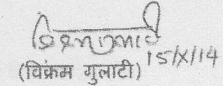 15/X/14
(विक्रम गुलाटी)